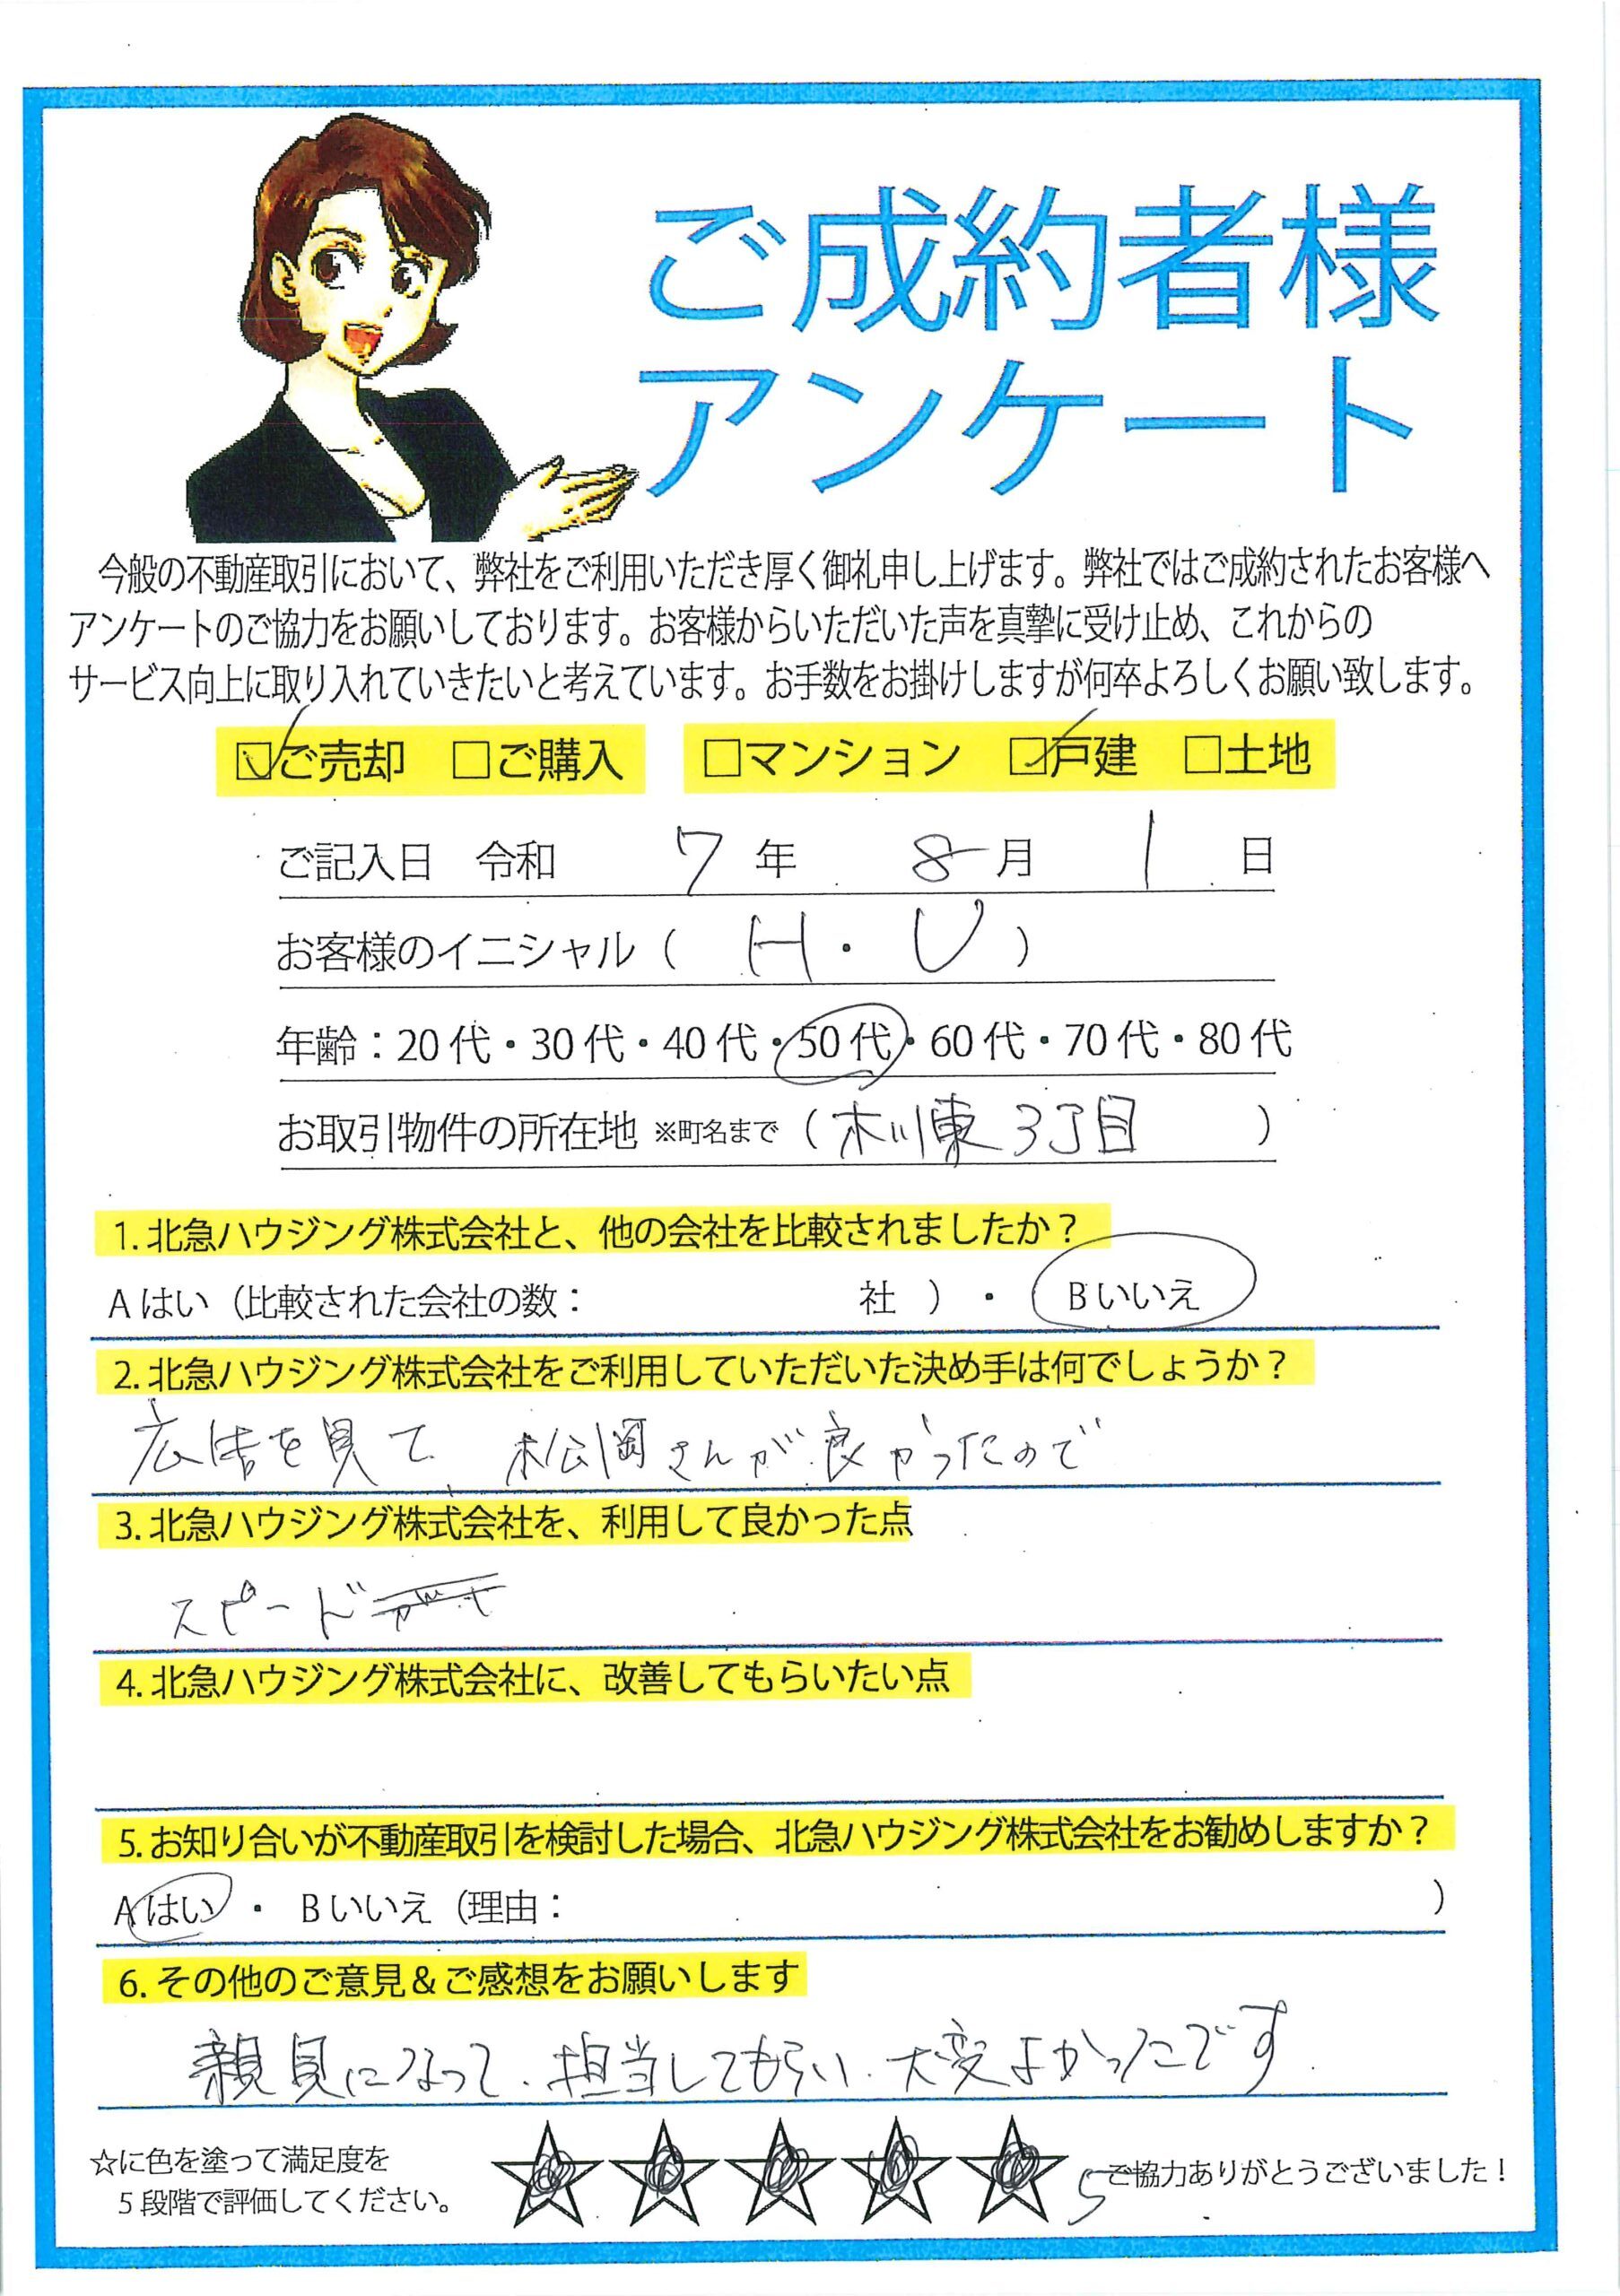 ご成約者様
アンケート
今般の不動産取引において、弊社をご利用いただき厚く御礼申し上げます。弊社ではご成約されたお客様へ
アンケートのご協力をお願いしております。お客様からいただいた声を真摯に受け止め、これからの
サービス向上に取り入れていきたいと考えています。お手数をお掛けしますが何卒よろしくお願い致します。
☑ご売却 □ご購入 □マンション ☑戸建 □土地
ご記入日 令和 7年 8月 1日
お客様のイニシャル( H・U )
年齢:20代・30代・40代・50代・60代・70代・80代
お取引物件の所在地 ※町名まで (木川東3丁目 )
1.北急ハウジング株式会社と、他の会社を比較されましたか?
Aはい(比較された会社の数: 社 )・Bいいえ
2.北急ハウジング株式会社をご利用していただいた決め手は何でしょうか?
広告を見て、松岡さんが良かったので
3.北急ハウジング株式会社を、利用して良かった点
スピード
4.北急ハウジング株式会社に、改善してもらいたい点
5.お知り合いが不動産取引を検討した場合、北急ハウジング株式会社をお勧めしますか?
Aはい ・ Bいいえ(理由: )
6.その他のご意見&ご感想をお願いします
親身になって、担当してもらい、大変よかったです
☆に色を塗って満足度を
5段階で評価してください。
★★★★★ 5 ご協力ありがとうございました!